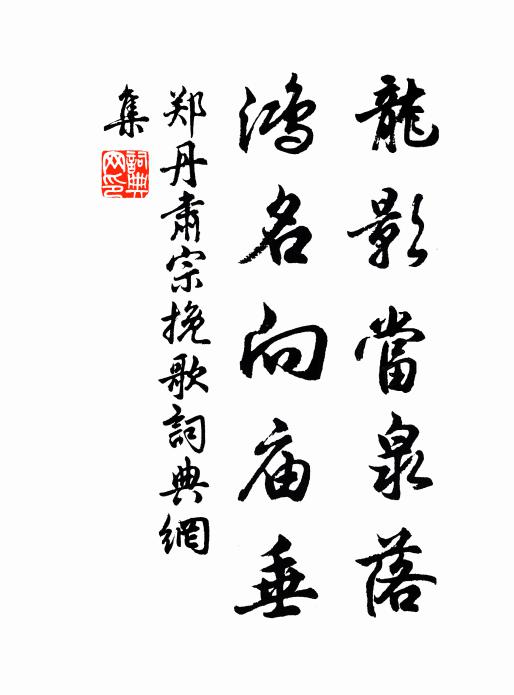 龍影當泉落
鴻名向庙垂
郑丹肅宗挽歌詞典網
集
詞典网印